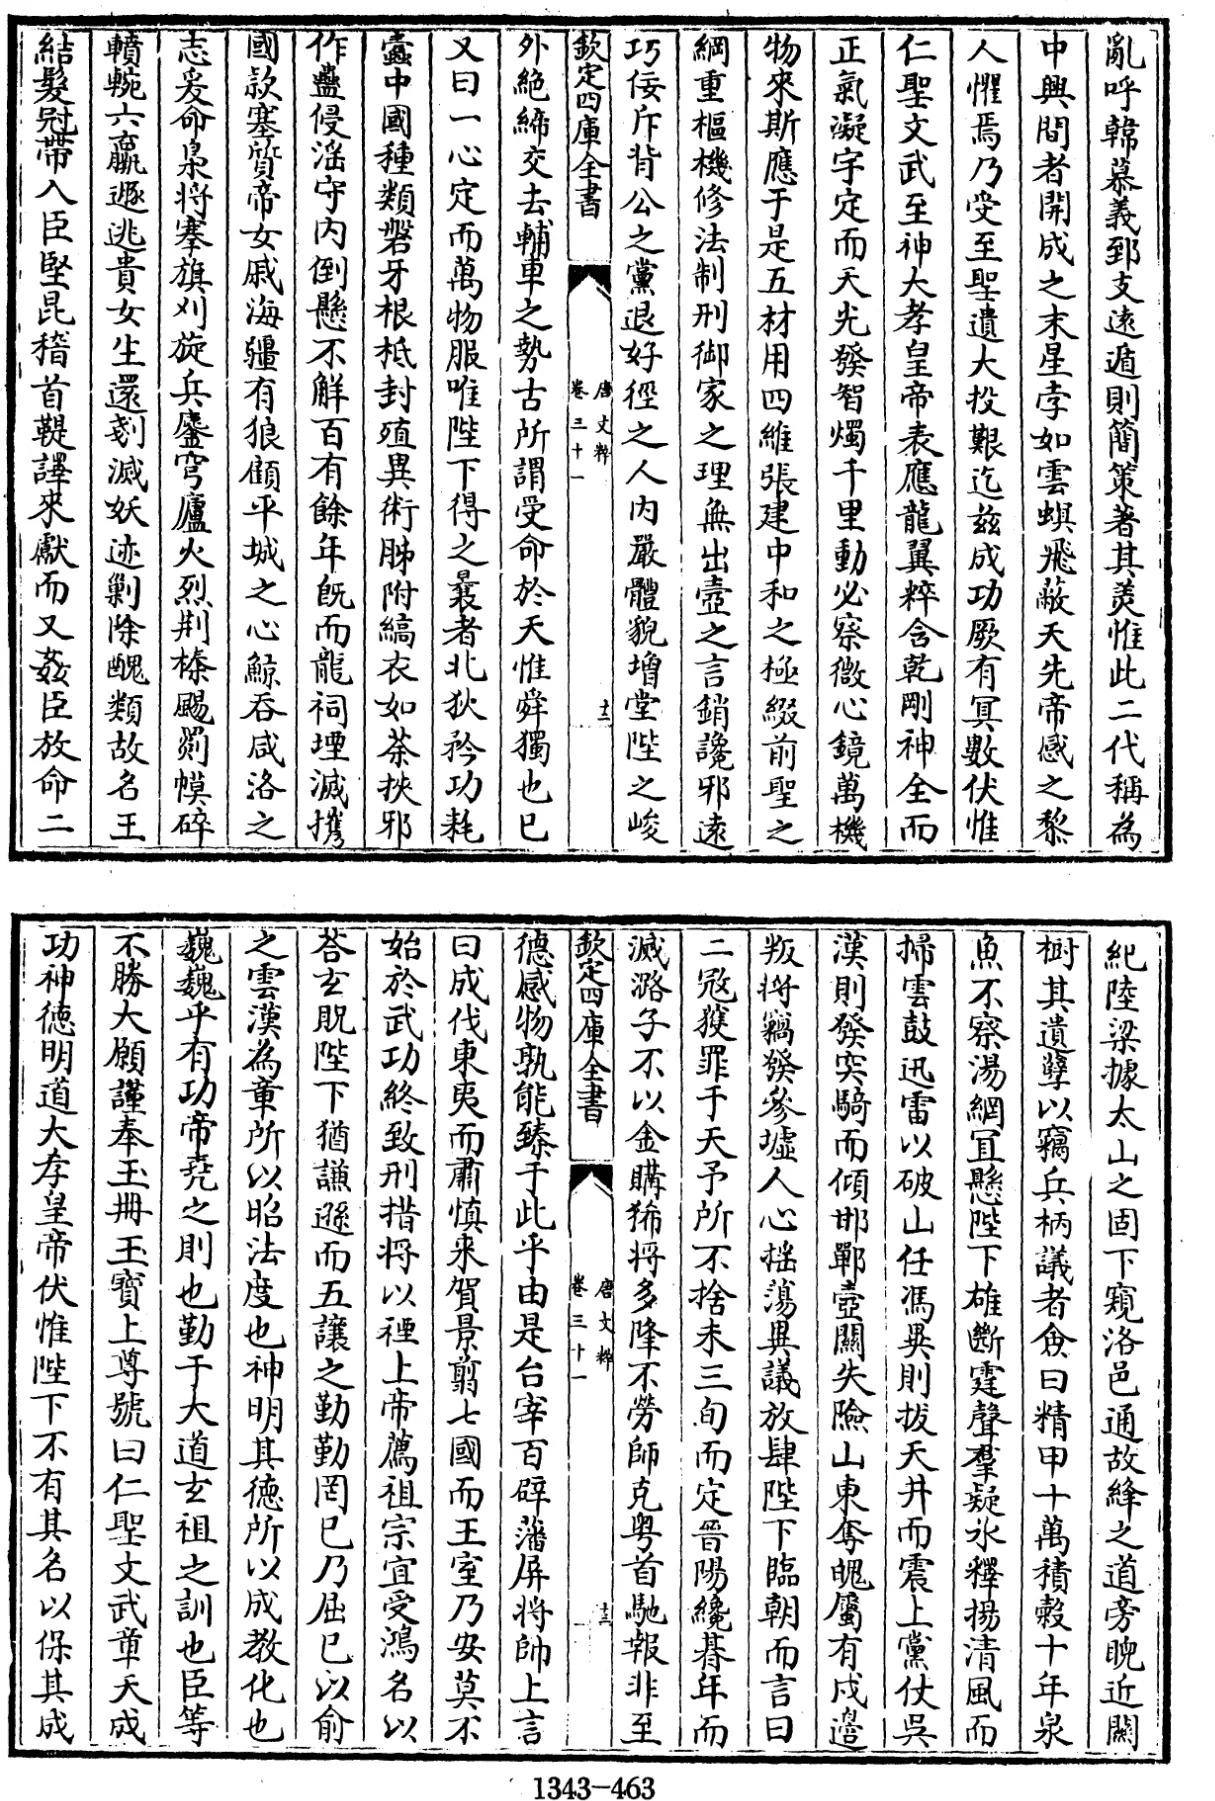 亂呼韓慕義郅支遠遁則簡策著其羙惟此二代稱為
中興間者開成之末星孛如雲蝗飛蔽天先帝感之黎
人懼焉乃受至聖遺大投艱迄兹成功厥有冥數伏惟
仁聖文武至神大孝皇帝表應龍翼粹含乾剛神全而
正氣凝宇定而天光發智燭千里動必察微心鏡萬機
物來斯應于是五材用四維張建中和之極綴前聖之
綱重樞機修法制刑御家之理無出壼之言銷讒邪遠
巧佞斥背公之黨退好徑之人内嚴體貌增堂陛之峻
欽定四庫全書
唐文粹
卷三十一
十二
外絶締交去輔車之勢古所謂受命於天惟舜獨也已
又曰一心定而萬物服唯陛下得之最者北狄矜功耗
蠧中國種類磐牙根柢封殖異術胏附縞衣如荼挾邪
作蠱侵淫守内倒懸不解百有餘年既而龍祠堙滅攜
國款塞質帝女戚海疆有狼顧平城之心鯨吞咸洛之
志爰命梟将搴旗刈旋兵鏖穹廬火烈荆榛颺𦋺幙碎
轒輓六驘遯逃貴女生還剗滅妖迹剿除醜類故名王
結髮冠帶入臣堅昆稽首鞮譯來獻而又姦臣放命二
紀陸梁據太山之固下窺洛邑通故絳之道旁睨近關
樹其遺孽以竊兵柄議者僉曰精甲十萬積穀十年泉
魚不察湯網冝懸陛下雄斷霆聲羣疑氷釋揚清風而
掃雲鼓迅雷以破山任馮異則拔天井而震上黨仗吳
漢則發突騎而傾邯鄲壺關失險山東奪魄屬有戍邉
叛将竊發參墟人心摇蕩異議放肆陛下臨朝而言曰
二冦獲罪于天予所不捨未三旬而定晉陽纔朞年而
滅潞子不以金購豨将多降不勞師克粤首馳報非至
欽定四庫全書
唐文粹
卷三十一
十三
德感物孰能臻于此乎由是台宰百辟藩屏将帥上言
曰成伐東夷而肅慎来賀景翦七國而王室乃安莫不
始於武功終致刑措将以禋上帝薦祖宗宜受鴻名以
荅玄貺陛下猶謙遜而五讓之勤勤罔已乃屈已以俞
之雲漢為章所以昭法度也神明其德所以成教化也
巍巍乎有功帝堯之則也勤于大道玄祖之訓也臣等
不勝大願謹奉玉冊玉寶上尊號曰仁聖文武章天成
功神德明道大孝皇帝伏惟陛下不有其名以保其成
1343-463